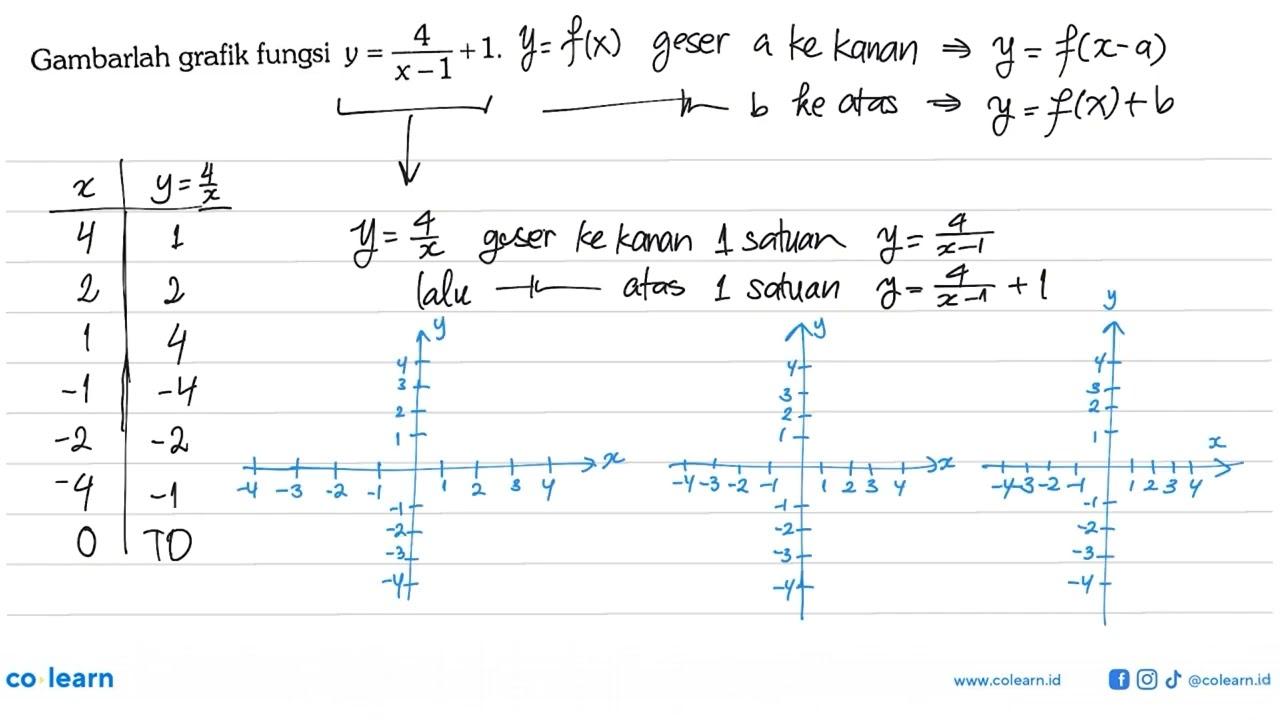 Gambarlah grafik fungsi y = 4/(x − 1) + 1. y = f(x) geser a ke kanan ⇒ y = f(x-a)
b ke atas ⇒ y = f(x) + b
x | y = 4/x
4 | 1
2 | 2
1 | 4
-1 | -4
-2 | -2
-4 | -1
0 | TD
y = 4/x geser ke kanan 1 satuan y = 4/(x-1)
lalu —"— atas 1 satuan y = 4/(x-1) + 1
y
4
3
2
1
x
-4 -3 -2 -1 1 2 3 4
-1
-2
-3
-4
y
4
3
2
1
x
-4 -3 -2 -1 1 2 3 4
-1
-2
-3
-4
y
4
3
2
1
x
-4 -3 -2 -1 1 2 3 4
-1
-2
-3
-4
co learn
www.colearn.id
@colearn.id